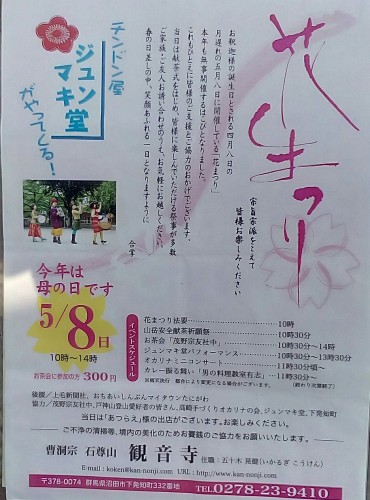 花まつり
宗旨宗派をこえて
皆様お楽しみください
お釈迦様の誕生日とされる四月八日の
月遅れの五月八日に開催している「花まつり」
本年も無事開催するはこびとなりました。
これもひとえに皆様のご支援とご協力のおかげでございます。
当日は献茶式をはじめ、皆様に楽しんでいただける祭事が多数
ご家族・ご友人お誘い合わせのうえ、お気軽にお越しください。
春の日差しの中、笑顔あふれる一日となりますように
合掌
チンドン屋
ジュン
マキ堂
がやってくる!
今年は
母の日です
5/8日
10時〜14時
お茶会に参加の方 300円
イベントスケジュール
花まつり法要 10時
山岳安全献茶祈願祭 10時30分
お茶会「茂野宗友社中」 10時30分〜14時
ジュンマキ堂パフォーマンス 10時30分〜13時30分
オカリナミニコンサート 11時30分頃〜
カレー振る舞い「男の料理教室有志」 11時30分〜
※雨天決行 都合により変更になる場合がございます。 (終わり次第終了)
後援/上毛新聞社、おもあいしんぶんマイタウンたにがわ
協力/茂野宗友社中、戸神山登山愛好者の皆さん、高崎手づくりオカリナの会、ジュンマキ堂、下発知町
当日は「あつらえ」様の出店がございます。お楽しみください。
ご不浄の清掃等、境内の美化のためお賽銭のご協力をお願いいたします。
曹洞宗 石尊山 観音寺 住職:五十木晃健(いかるぎこうけん)
E-mail : koken@kan-nonji.com URL : http://www.kan-nonji.com
〒378-0074 群馬県沼田市下発知町332番地 TEL 0278-23-9410